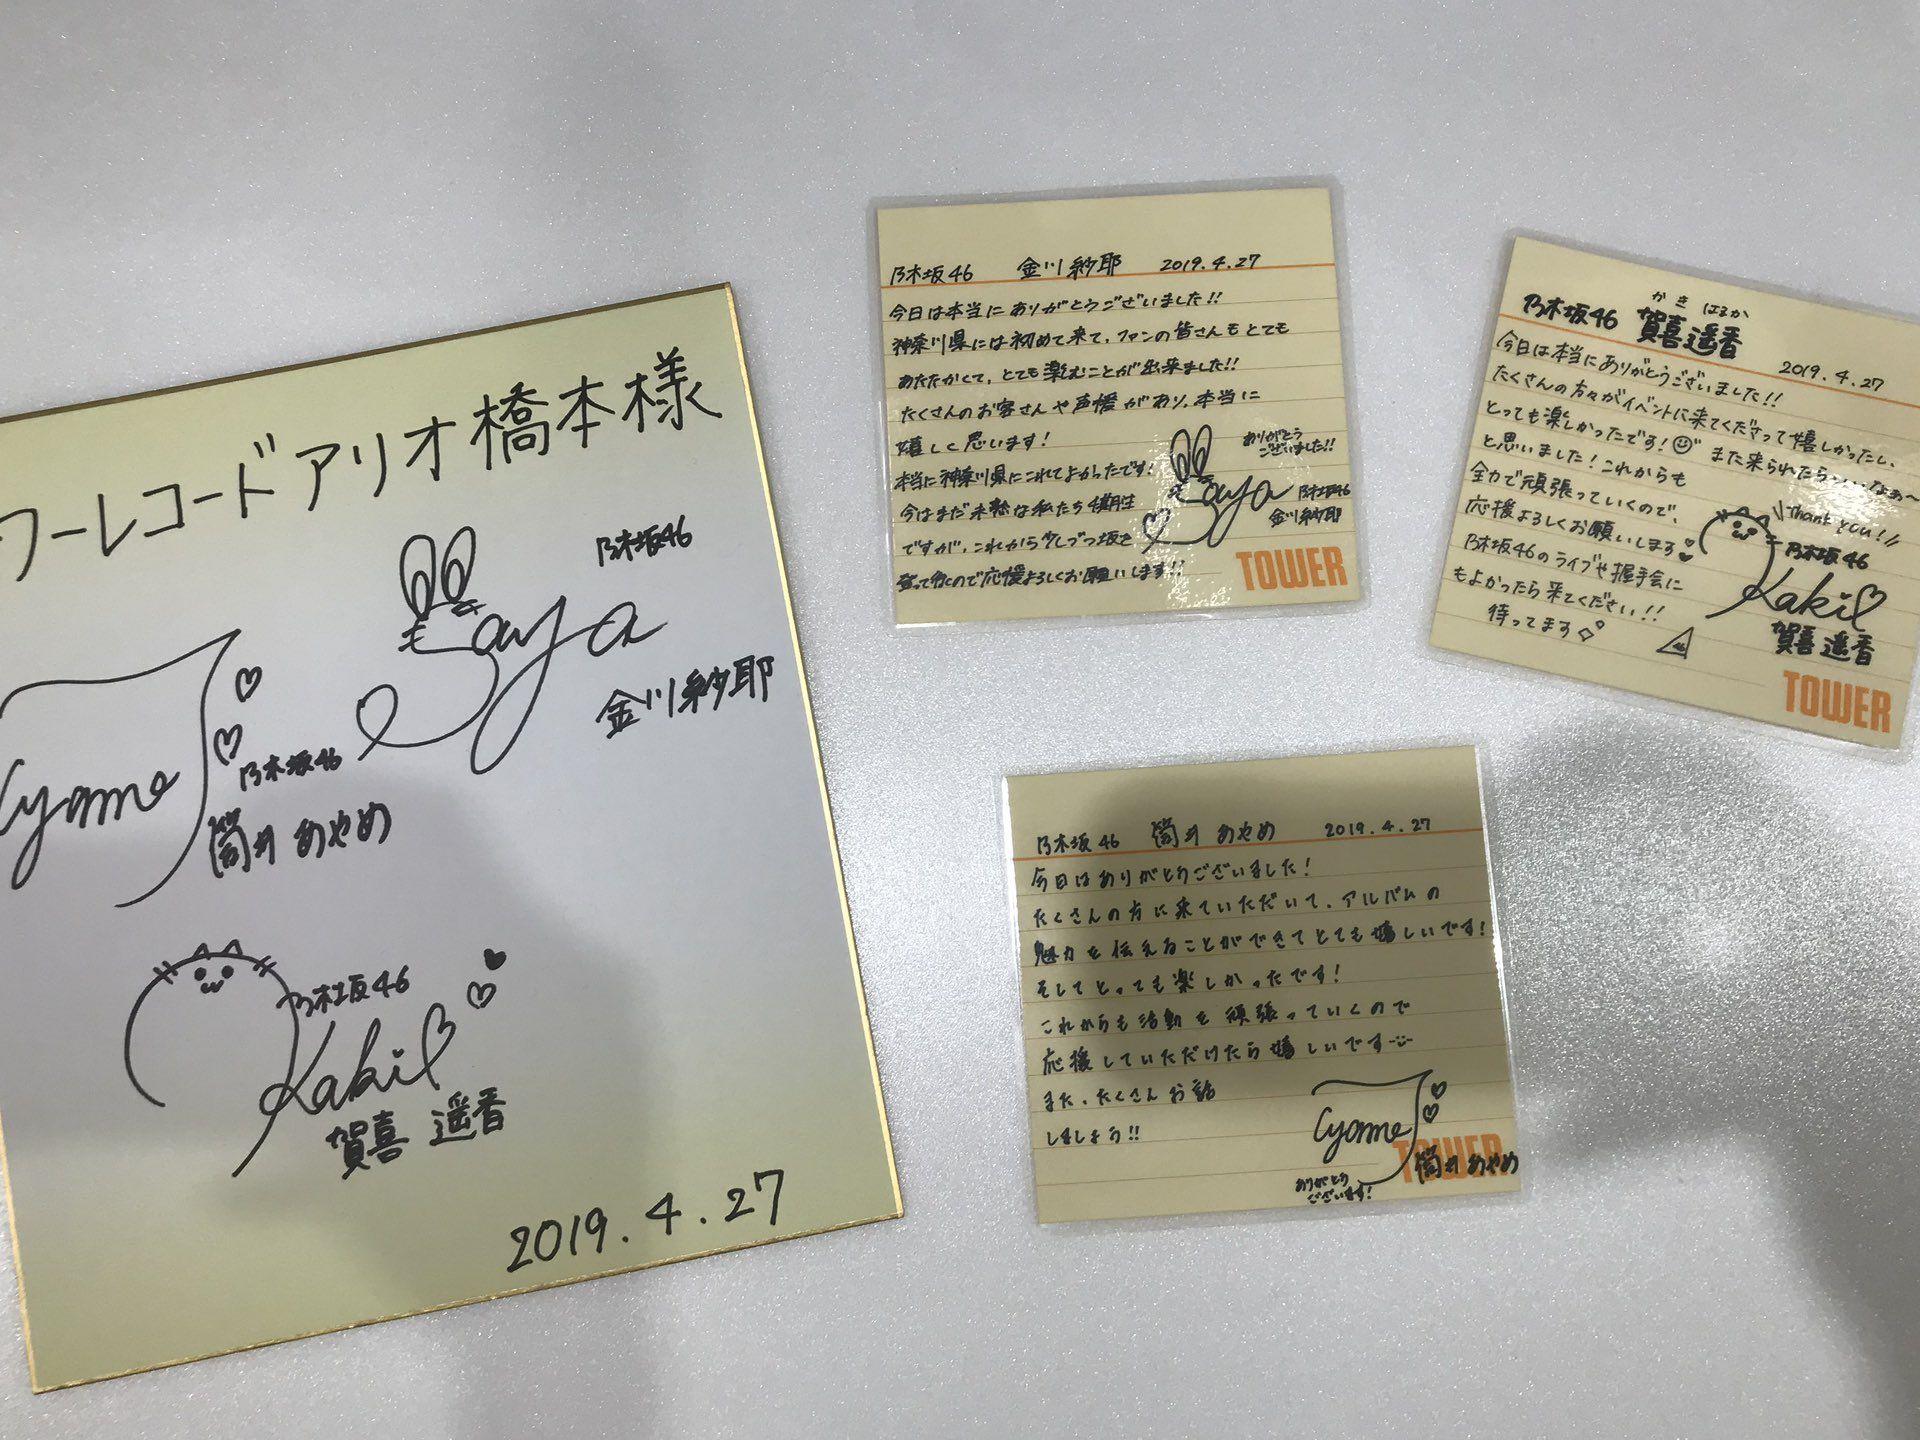 ワーレコードアリオ橋本様
乃木坂46
Saya
金川紗耶
乃木坂46
筒井あやめ
乃木坂46
Kaki
賀喜 遥香
2019.4.27
乃木坂46 金川紗耶 2019.4.27
今日は本当にありがとうございました!!
神奈川県には初めて来て、ファンの皆さんもとても
あたたかくて、とても楽むことが出来ました!!
たくさんのお客さんや声援があり、本当に
嬉しく思います!
本当に神奈川県にこれてよかったです!
今はまだ未熟な私たち4期生
ですが、これから少しづつ坂を
登って行くので応援よろしくお願いします!!
ありがとう
ございました!!
Saya
乃木坂46
金川紗耶
TOWER
かき はるか
乃木坂46 賀喜遥香
2019.4.27
今日は本当にありがとうございました!!
たくさんの方々がイベントに来てくださって嬉しかったし、
とっても楽しかったです!また来られたらいいなぁ〜
と思いました!これからも
全力で頑張っていくので、
応援よろしくお願いします
乃木坂46のライブや握手会に
もよかったら来てください!!
待ってます
Thank you!!
乃木坂46
Kaki
賀喜 遥香
TOWER
乃木坂46 筒井 あやめ 2019.4.27
今日はありがとうございました!
たくさんの方に来ていただいて、アルバムの
魅力を伝えることができてとても嬉しいです!
そしてとっても楽しかったです!
これからも活動を頑張っていくので
応援していただけたら嬉しいです
また、たくさんお話
しましょう!!
筒井 あやめ
ありがとう
ございます!
TOWER